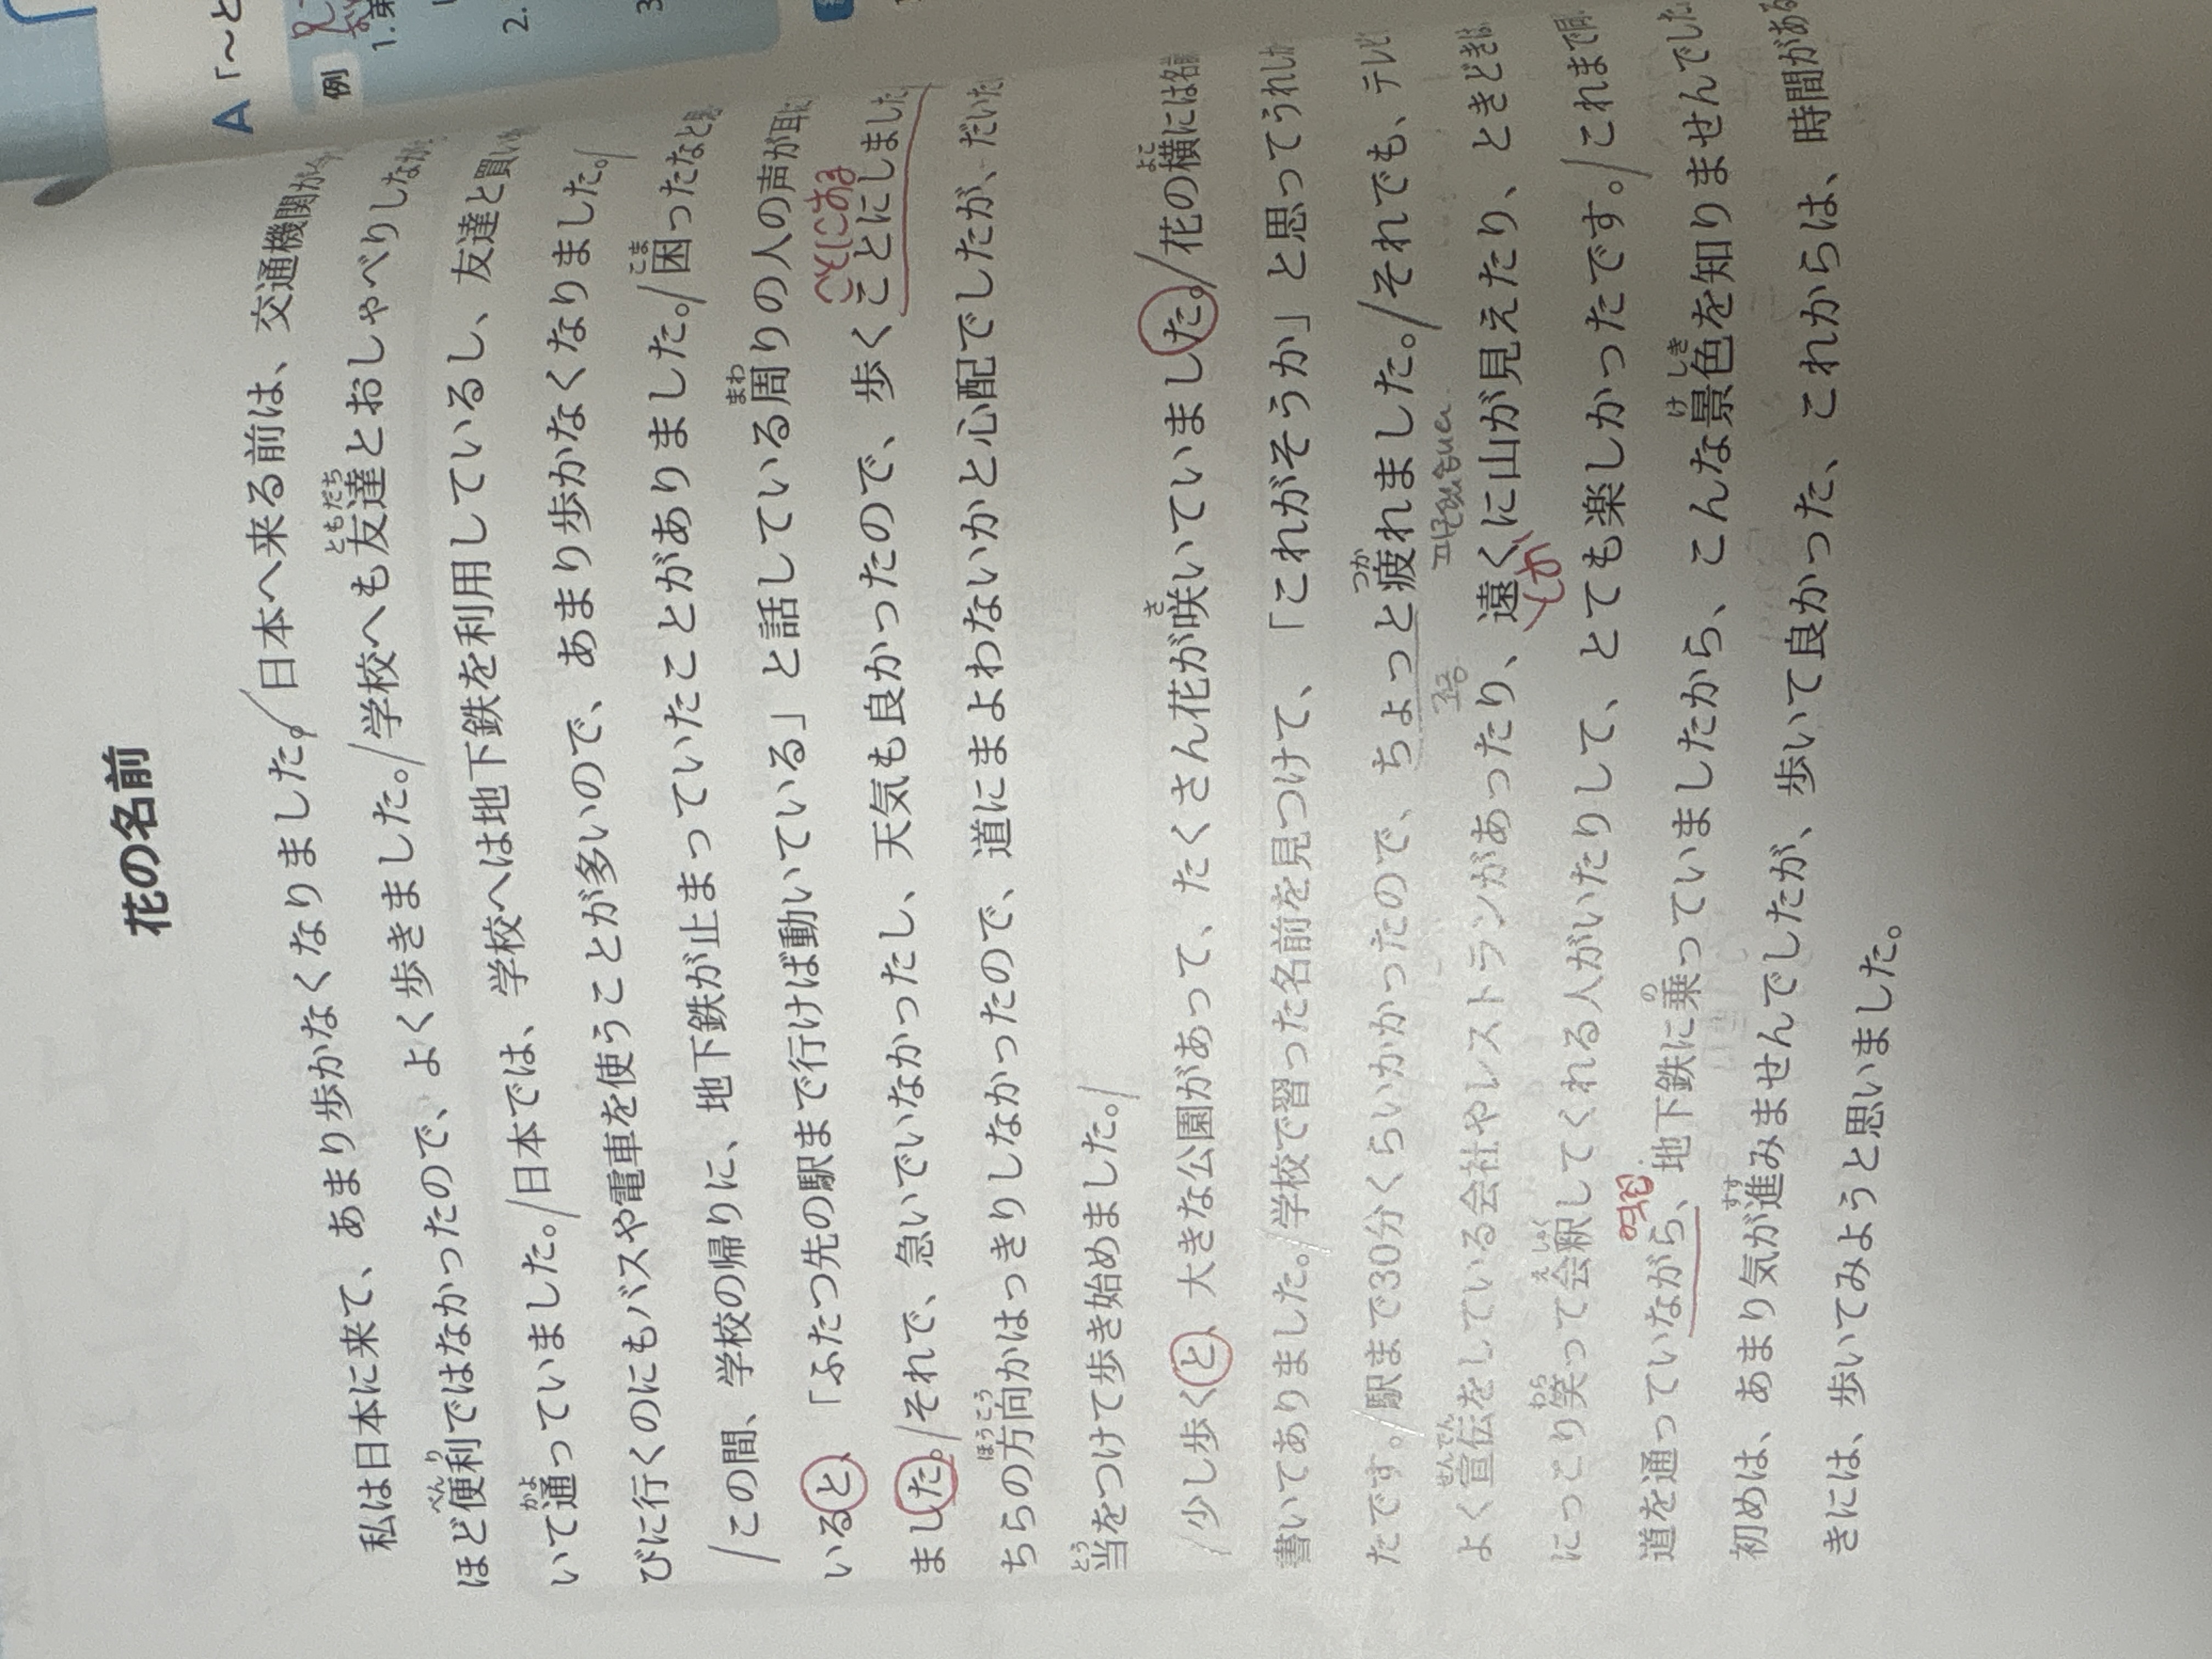 花の名前
私は日本に来て、あまり歩かなくなりました。日本へ来る前は、交通機関が
ほど便利ではなかったので、よく歩きました。学校へも友達とおしゃべりしなが
いて通っていました。日本では、学校へは地下鉄を利用しているし、友達と買い
びに行くのにもバスや電車を使うことが多いので、あまり歩かなくなりました。
この間、学校の帰りに、地下鉄が止まっていたことがありました。困ったなと
いると、「ふたつ先の駅まで行けば動いている」と話している周りの人の声が耳に
ました。それで、急いでいなかったし、天気も良かったので、歩くことにしました
ちらの方向かはっきりしなかったので、道にまよわないかと心配でしたが、だいた
当をつけて歩き始めました。
少し歩くと、大きな公園があって、たくさん花が咲いていました。花の横には名
書いてありました。学校で習った名前を見つけて、「これがそうか」と思ってうれし
たです。駅まで30分くらいかかったので、ちょっと疲れました。それでも、テレビ
よく宣伝をしている会社やレストランがあったり、遠くに山が見えたり、ときどき
にっこり笑って会釈してくれる人がいたりして、とても楽しかったです。これまで同
道を通っていながら、地下鉄に乗っていましたから、こんな景色を知りませんでした
初めは、あまり気が進みませんでしたが、歩いて良かった、これからは、時間がある
きには、歩いてみようと思いました。
ともだち
べんり
かよ
こま
まわ
ほうこう
とう
さ
よこ
つか
せんでん
わら
えしゃく
の
けしき
すす
조금
A「〜と
例
1.
2.
3